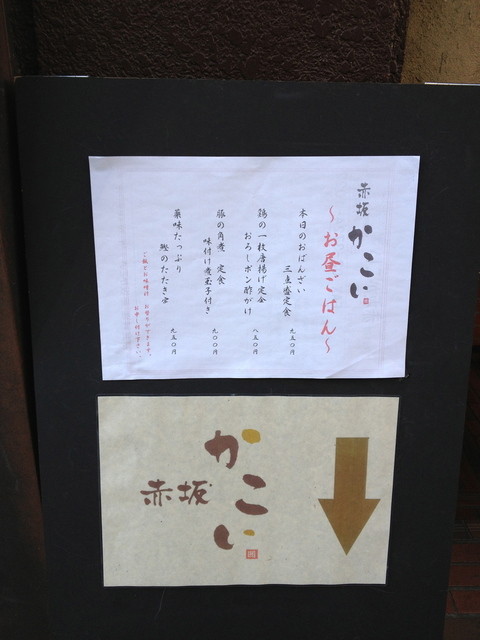 赤坂
かこい
～お昼ごはん～
本日のおばんざい
三点盛定食
九五〇円
鶏の一枚唐揚げ定食
おろしポン酢がけ
八五〇円
豚の角煮 定食
味付け煮玉子付き
九〇〇円
薬味たっぷり
鰹のたたき
九五〇円
お替りができます。
お申し付け下さい。
かこい
赤坂